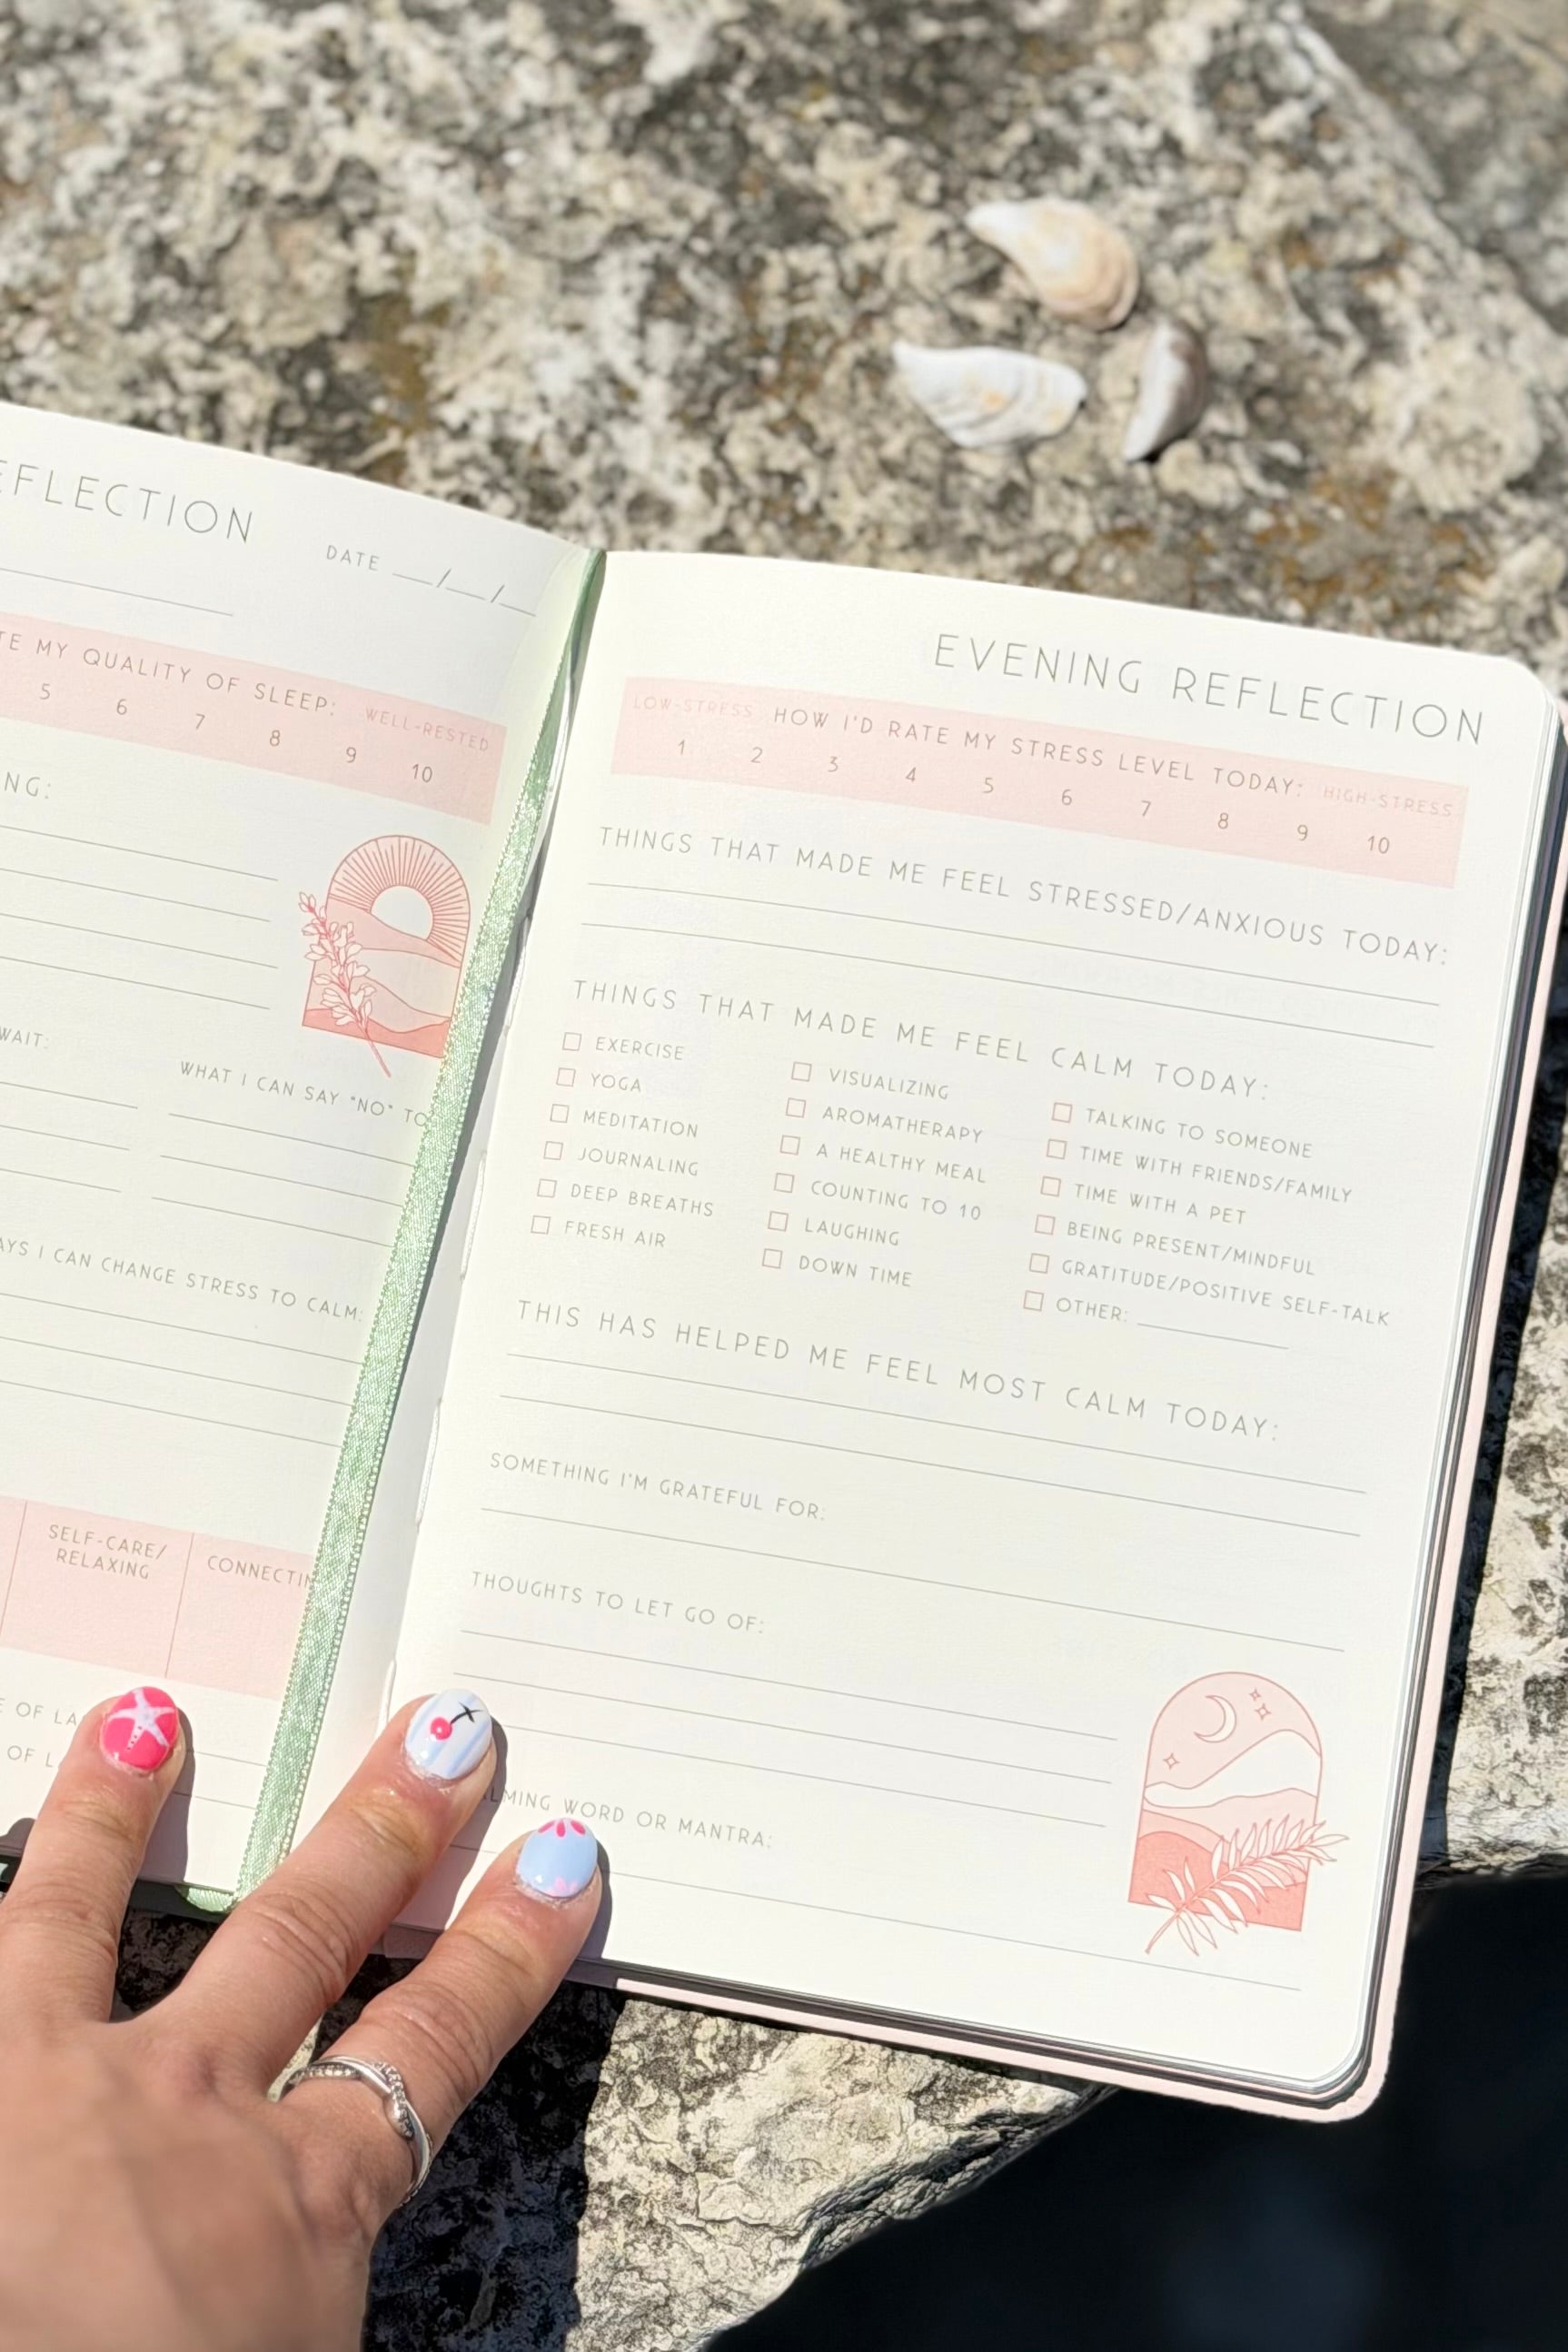 EFLECTION
DATE __/__/__
TE MY QUALITY OF SLEEP: WELL-RESTED
5 6 7 8 9 10
NG:
WAIT:
WHAT I CAN SAY "NO" TO
AYS I CAN CHANGE STRESS TO CALM:
SELF-CARE/
RELAXING
CONNECTIN
E OF LA
OF L
EVENING REFLECTION
LOW-STRESS HOW I'D RATE MY STRESS LEVEL TODAY: HIGH-STRESS
1 2 3 4 5 6 7 8 9 10
THINGS THAT MADE ME FEEL STRESSED/ANXIOUS TODAY:
THINGS THAT MADE ME FEEL CALM TODAY:
EXERCISE
YOGA
MEDITATION
JOURNALING
DEEP BREATHS
FRESH AIR
VISUALIZING
AROMATHERAPY
A HEALTHY MEAL
COUNTING TO 10
LAUGHING
DOWN TIME
TALKING TO SOMEONE
TIME WITH FRIENDS/FAMILY
TIME WITH A PET
BEING PRESENT/MINDFUL
GRATITUDE/POSITIVE SELF-TALK
OTHER: __________
THIS HAS HELPED ME FEEL MOST CALM TODAY:
SOMETHING I'M GRATEFUL FOR:
THOUGHTS TO LET GO OF:
LMING WORD OR MANTRA: